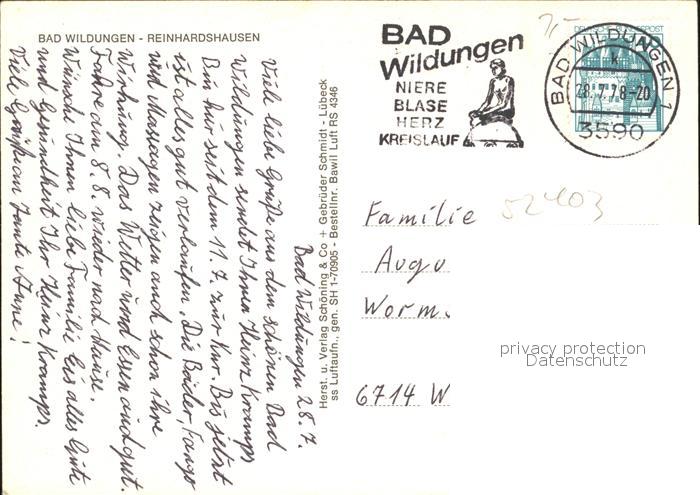 BAD WILDUNGEN - REINHARDSHAUSEN
Bad Wildungen 28.7.
Viele liebe Grüße aus dem schönen Bad
Wildungen sendet Ihnen Heinz Kramps
Bin hier seit dem 11.7. zur Kur. Bis jetzt
ist alles gut verlaufen. Die Bäder, Fango
und Massagen zeigen auch schon ihre
Wirkung. Das Wetter und Essen sind gut.
Fahre am 8.8. wieder nach Hause.
Wünsche Ihnen liebe Familie bis alles Gute
und Gesundheit Ihr Heinz Kramps.
Viele Grüße an Tante Anne!
Herst. u. Verlag Schöning & Co + Gebrüder Schmidt - Lübeck
ss Luftaufn., gen. SH 1-70905 - Bestellnr. Bawil Luft RS 4346
BAD
Wildungen
NIERE
BLASE
HERZ
KREISLAUF
BAD WILDUNGEN 1
k
28.7.78-20
3590
Familie 52403
Augu
Worm.
6714 W
privacy protection
Datenschutz